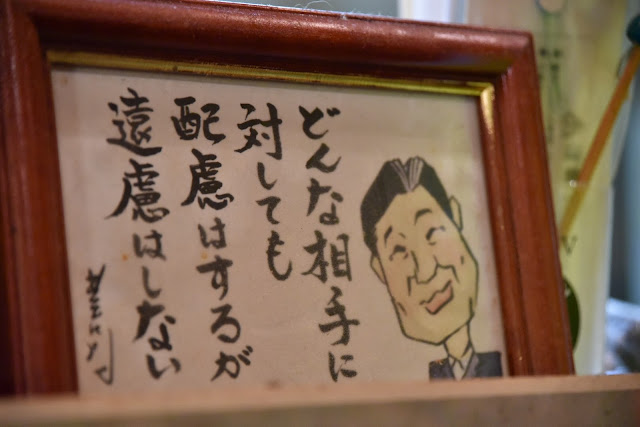 どんな相手に
対しても
配慮はするが
遠慮はしない